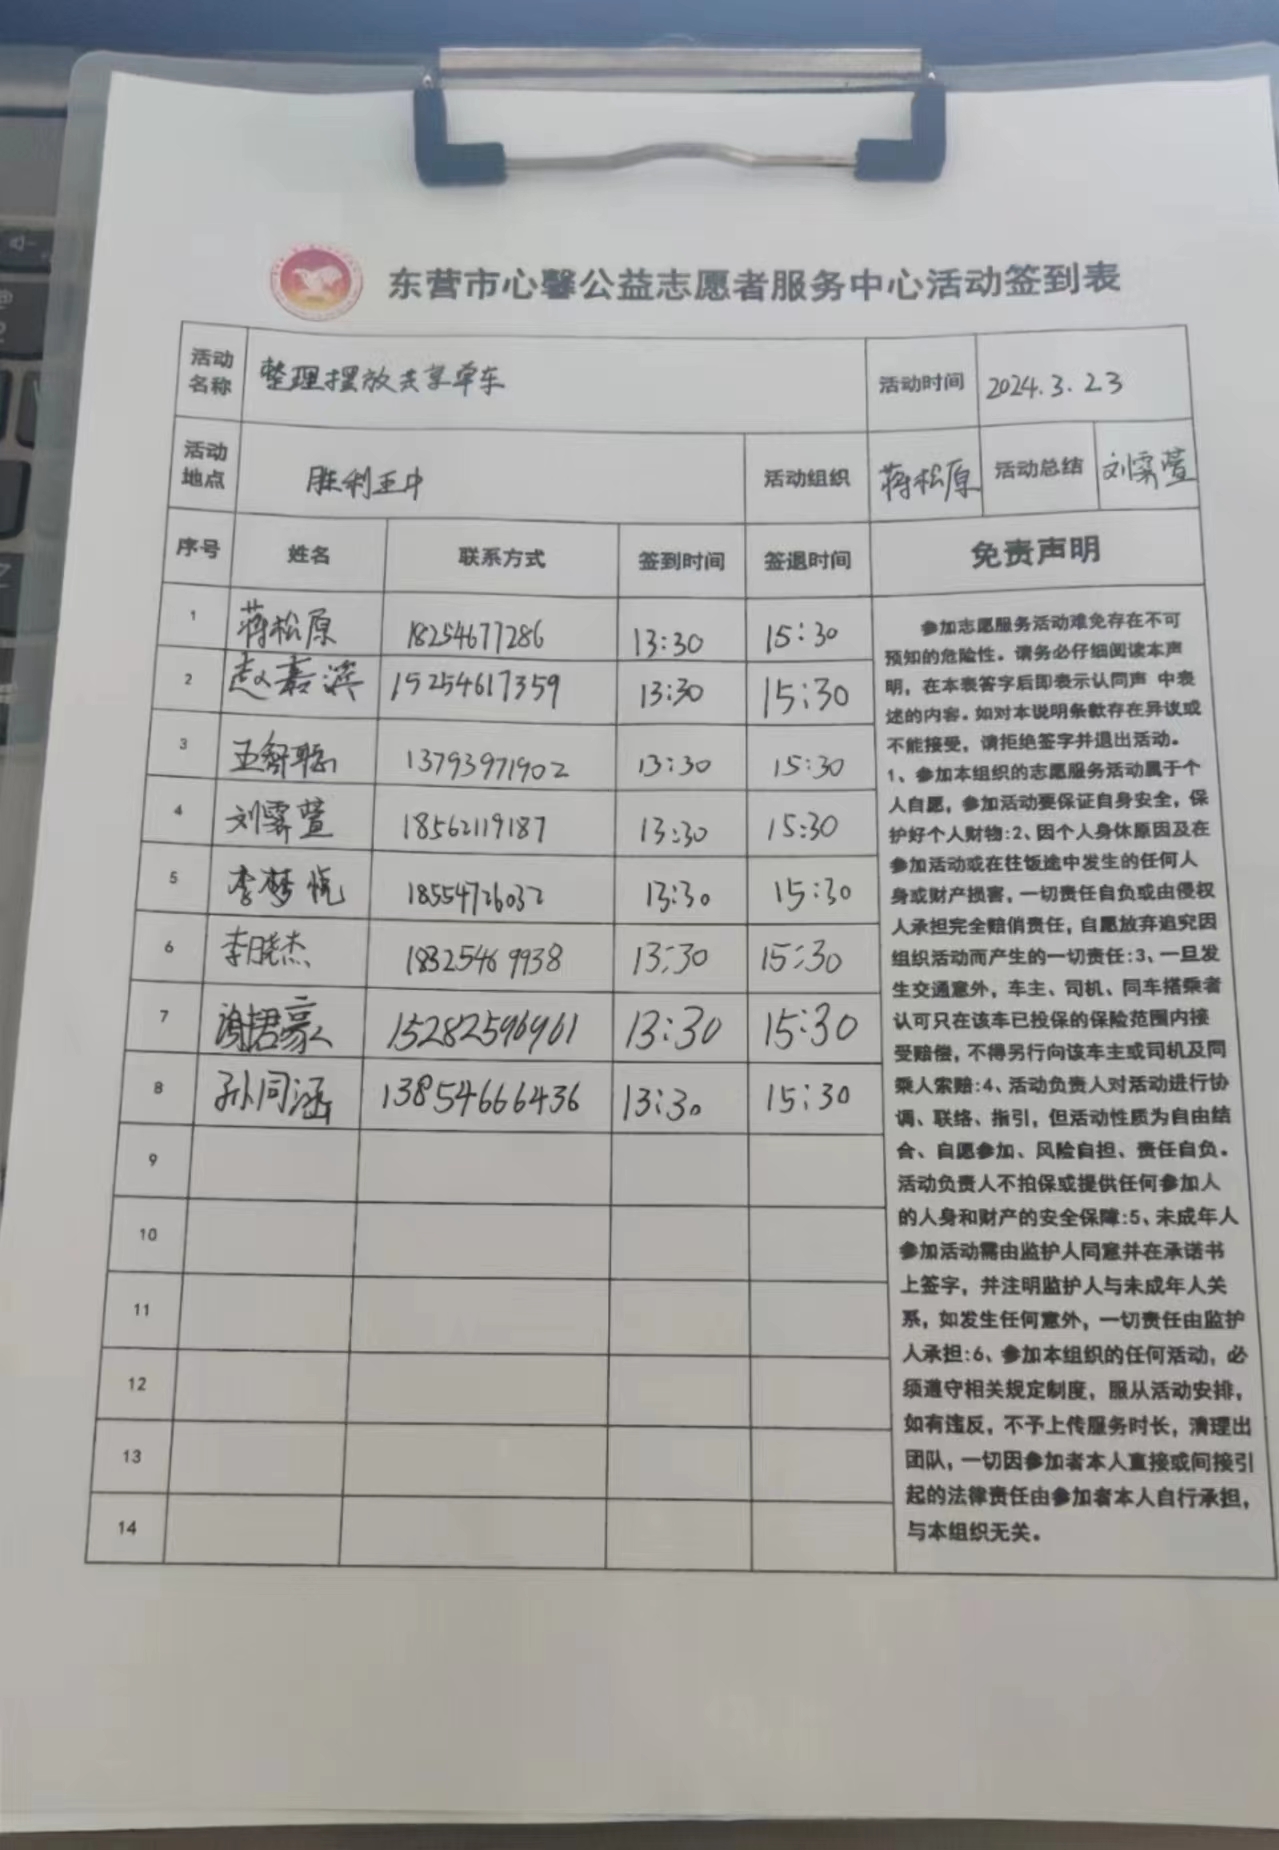 东营市心馨公益志愿者服务中心活动签到表
活动名称 整理摆放共享单车 活动时间 2024.3.23
活动地点 胜利五中 活动组织 蒋松原 活动总结 刘霁萱
序号 姓名 联系方式 签到时间 签退时间 免责声明
1 蒋松原 18254677286 13:30 15:30
2 赵嘉滨 15254617359 13:30 15:30
3 王舒聪 13793971902 13:30 15:30
4 刘霁萱 18562119187 13:30 15:30
5 李梦悦 18554726032 13:30 15:30
6 李晓杰 18325469938 13:30 15:30
7 谢君豪 15282596961 13:30 15:30
8 孙同涵 13854666436 13:30 15:30
9
10
11
12
13
14
参加志愿服务活动难免存在不可
预知的危险性。请务必仔细阅读本声
明，在本表答字后即表示认同声 中表
述的内容。如对本说明条款存在异议或
不能接受，请拒绝签字并退出活动。
1、参加本组织的志愿服务活动属于个
人自愿，参加活动要保证自身安全，保
护好个人财物:2、因个人身休原因及在
参加活动或在往饭途中发生的任何人
身或财产损害，一切责任自负或由侵权
人承担完全赔偿责任，自愿放弃追究因
组织活动而产生的一切责任:3、一旦发
生交通意外，车主、司机、同车搭乘者
认可只在该车已投保的保险范围内接
受赔偿，不得另行向该车主或司机及同
乘人索赔:4、活动负责人对活动进行协
调、联络、指引，但活动性质为自由结
合、自愿参加、风险自担、责任自负。
活动负责人不拍保或提供任何参加人
的人身和财产的安全保障:5、未成年人
参加活动需由监护人同意并在承诺书
上签字，并注明监护人与未成年人关
系，如发生任何意外，一切责任由监护
人承担:6、参加本组织的任何活动，必
须遵守相关规定制度，服从活动安排，
如有违反，不予上传服务时长，清理出
团队，一切因参加者本人直接或间接引
起的法律责任由参加者本人自行承担，
与本组织无关。